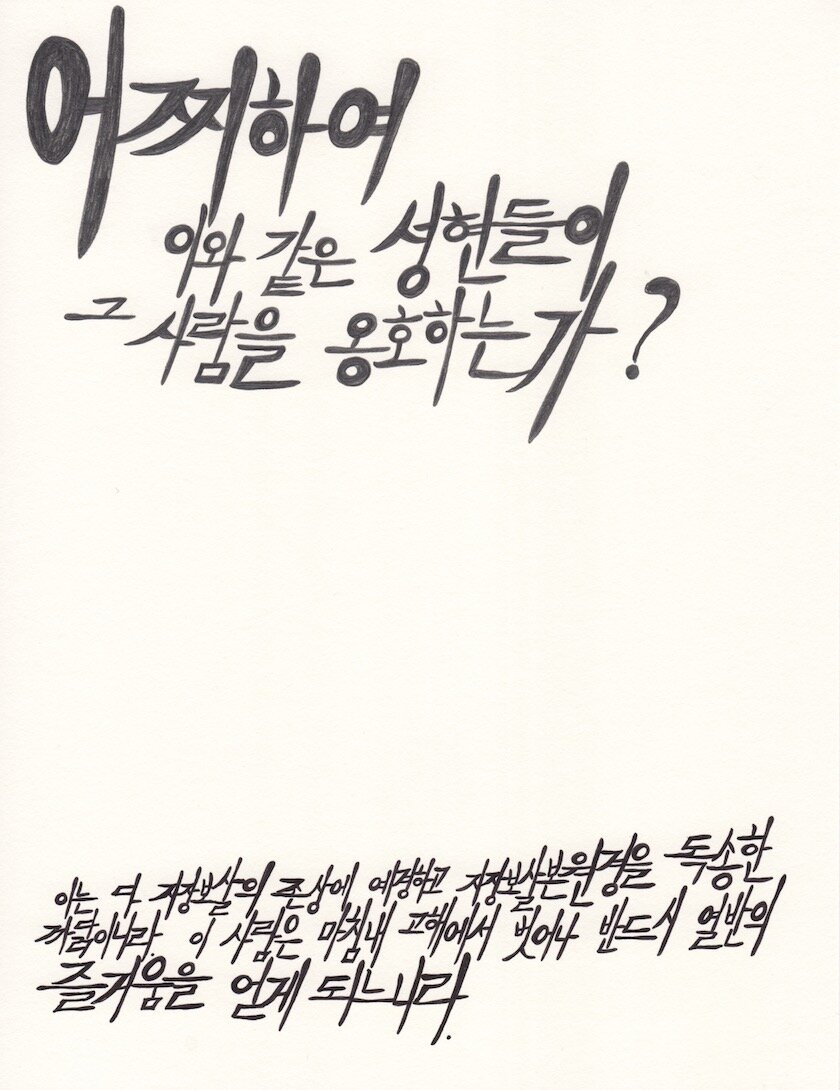 어찌하여
이와 같은 성현들이
그 사람을 옹호하는가?
이는 다 지장보살의 존상에 예경하고 지장보살본원경을 독송한
까닭이니라. 이 사람은 마침내 고해에서 벗어나 반드시 열반의
즐거움을 얻게 되느니라.